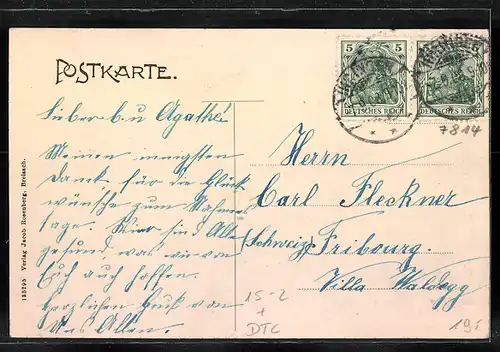 POSTKARTE.
5 5
DEUTSCHES REICH
DEUTSCHES REICH
7814
Lieber b. u Agathe!
Meinen innigsten
Dank für die Glück
wünsche zum Namens
tage. Wir sind Alle
gesund, was wir von
Euch auch hoffen.
Herzlichen Gruß von
Uns Allen.
Herrn
Carl Fleckner
(Schweiz) Fribourg.
Villa Waldegg
15-2
+
DTC
135793 Verlag Jacob Rosenberg, Breisach.